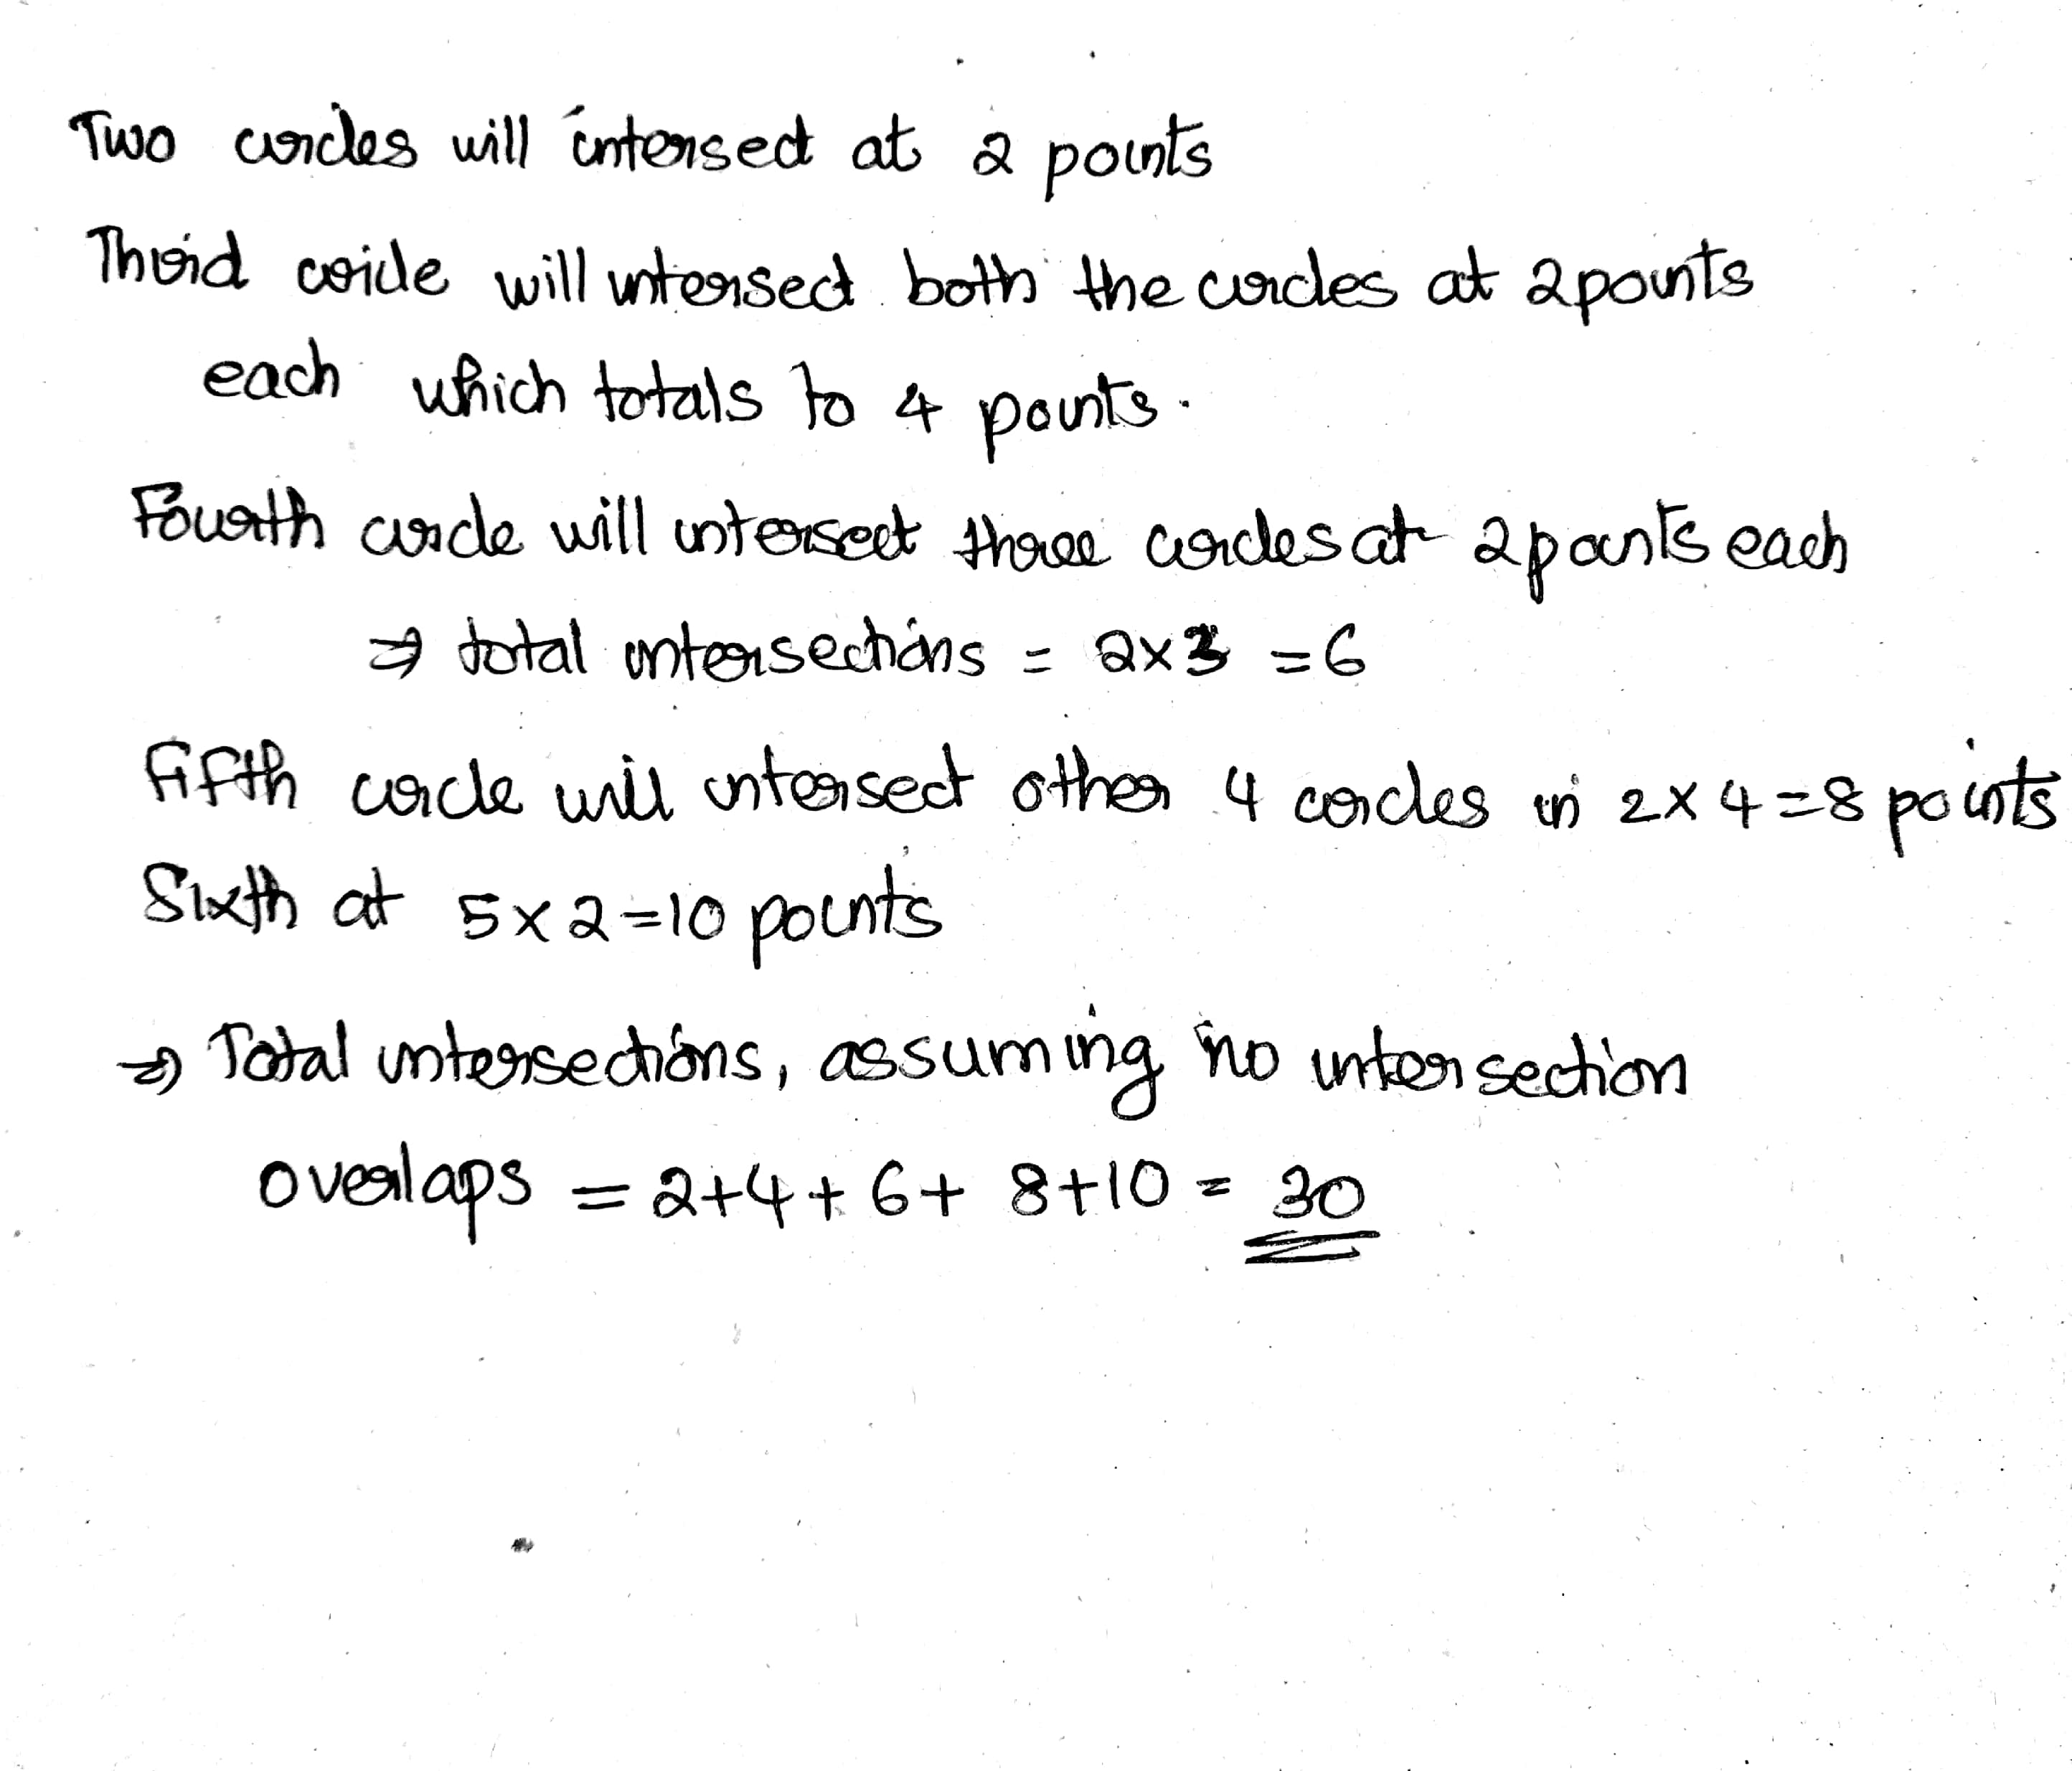 Two circles will intersect at 2 points
Third circle will intersect both the circles at 2 points
each which totals to 4 points.
Fourth circle will intersect three circles at 2 points each
⇒ total intersections = 2×3 = 6
Fifth circle will intersect other 4 circles in 2×4=8 points
Sixth at 5×2=10 points
⇒ Total intersections, assuming no intersection
overlaps = 2+4+6+8+10 = 30